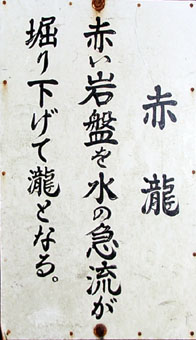 赤瀧
赤い岩盤を水の急流が
堀り下げて瀧となる。